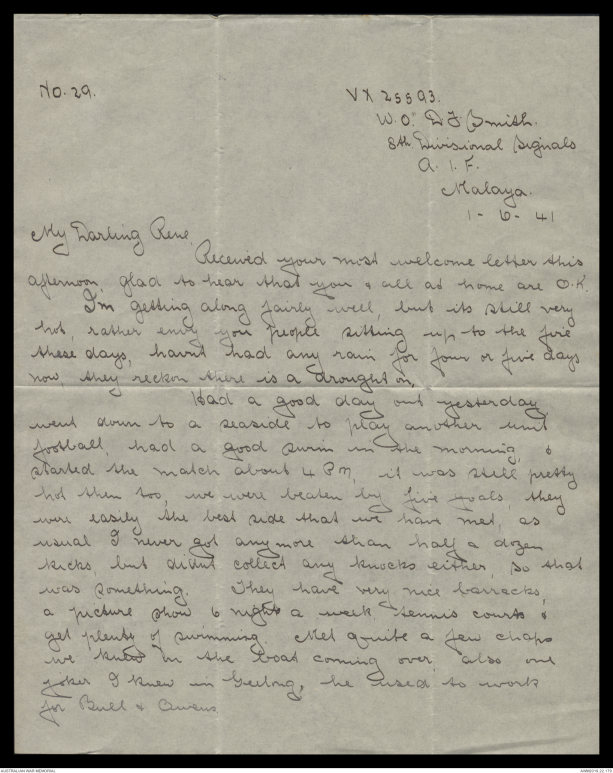 No. 29.
VX 25593.
W.O." D J Smith.
8th Divisional Signals
A. I. F.
Malaya.
1 - 6 - 41
My Darling Rene,
Received your most welcome letter this
afternoon, glad to hear that you & all at home are O.K.
I'm getting along fairly well, but its still very
hot, rather envy you people sitting up to the fire
these days, havnt had any rain for four or five days
now, they reckon there is a drought on,
Had a good day out yesterday,
went down to a seaside to play another unit
football, had a good swim in the morning, &
started the match about 4 PM, it was still pretty
hot then too, we were beaten by five goals, they
were easily the best side that we have met, as
usual I never got anymore than half a dozen
kicks, but didnt collect any knocks either, so that
was something. They have very nice barracks,
a picture show 6 nights a week tennis courts &
get plenty of swimming. Met quite a few chaps
we knew in the boat coming over, also one
joker I knew in Geelong, he used to work
for Bull & Owens
AUSTRALIAN WAR MEMORIAL